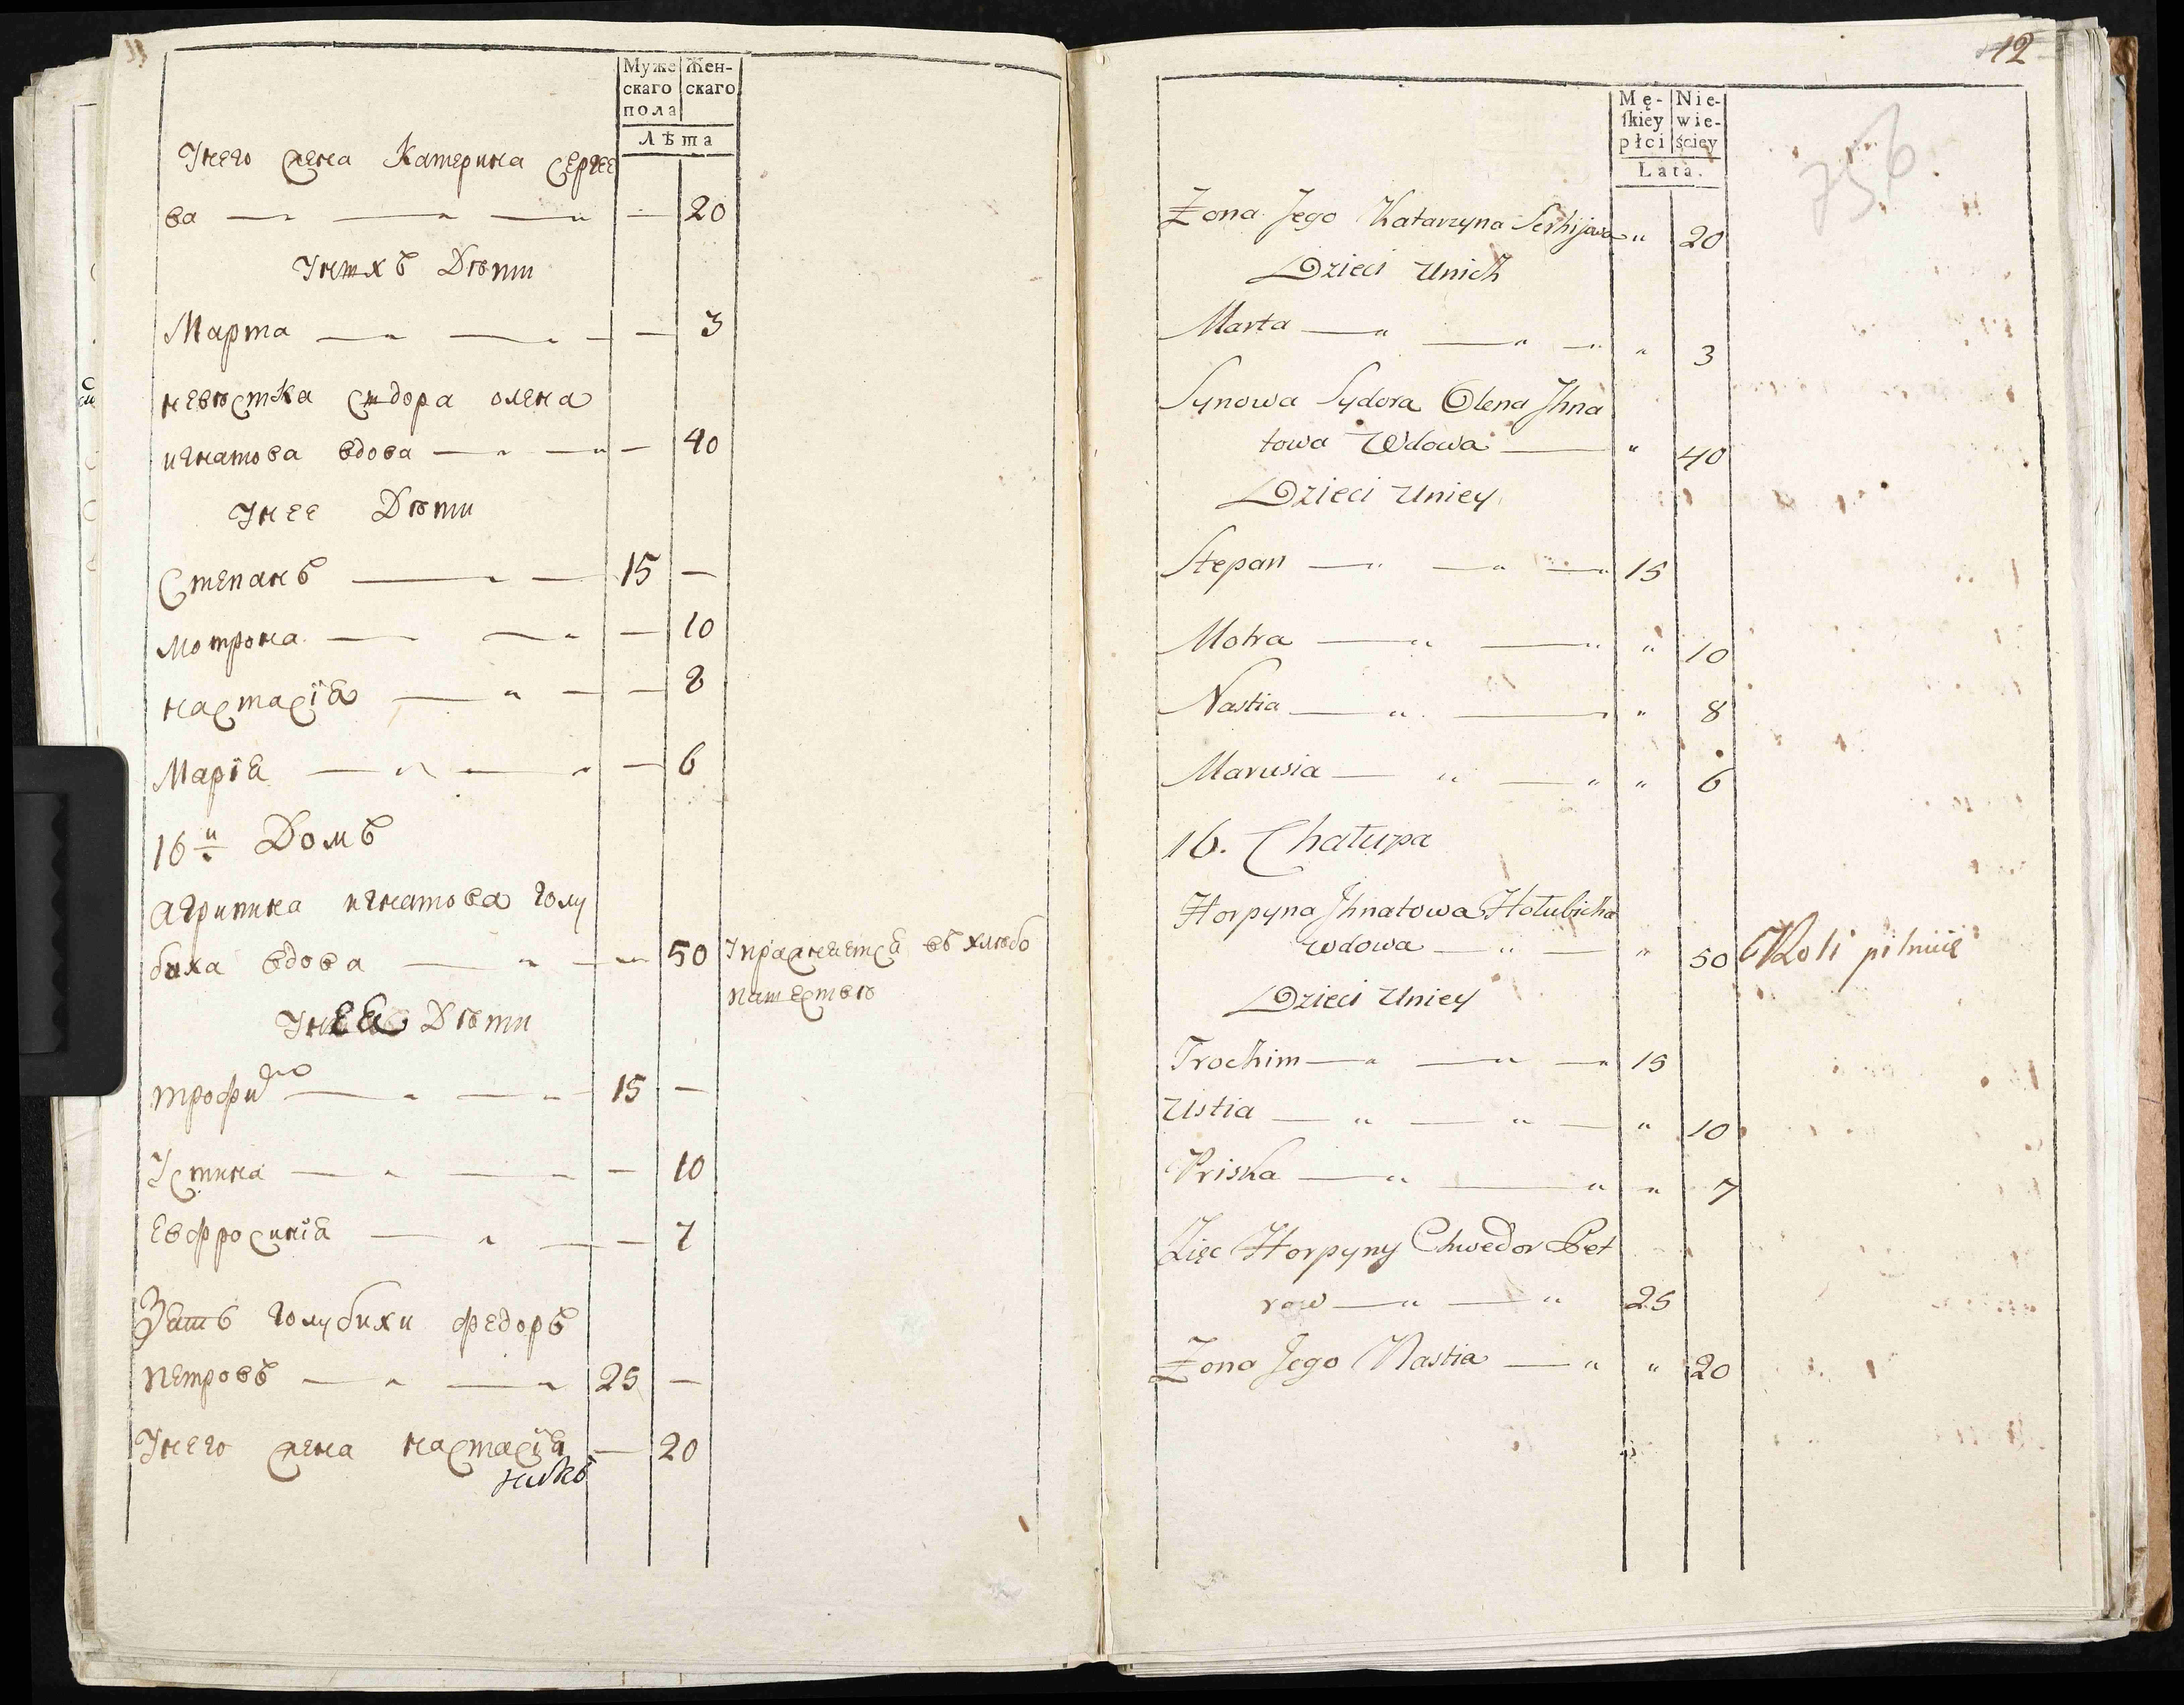 Муже Жен-
скаго скаго
пола
Лѣта
Унего жена Катерина Сергее
ва — — — — 20
Унихъ Дѣти
Марта — — — — 3
невѣстка сидора олена
игнатова вдова — — — 40
Унее Дѣти
Степанъ — — 15 —
мотрона — — — 10
настасія — — — 8
Марія — — — 6
16й Домъ
агрипина игнатова голу
биха вдова — — — 50 Упражняется въ хлѣбо
пашествѣ
Унея Дѣти
трофим — — 15 —
Устина — — — 10
Евфросинія — — — 7
Зять голубихи федоръ
петровъ — — 25 —
Унего жена настасія — 20
12
756
Mę- Nie-
skiey wie-
płci ściey
Lata.
Żona Jego Katarzyna Serhijowa " 20
Dzieci Unich
Marta — " — " — " " 3
Synowa Sydora Olena Jhna
towa Wdowa — " 40
Dzieci Uniey
Stepan — " — " — " 15
Motra — " — " " 10
Nastia — " — " 8
Marusia — " — " " 6
16. Chałupa
Horpyna Jhnatowa Hołubicha
wdowa — " — " 50 Roli pilnuie
Dzieci Uniey
Trochim — " — " — " 15
Ustia — " — " — " 10
Priska — " — " " 7
Zięc Horpyny Chwedor Pet
row — " — " 25
Żona Jego Nastia — " " 20